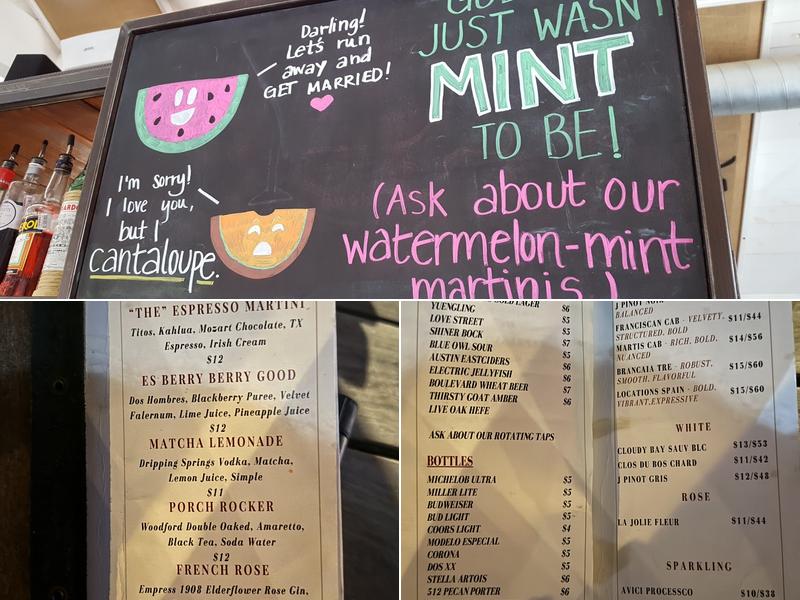 Darling!
Let's run
away and
GET MARRIED!
I'm sorry!
I love you,
but I
cantaloupe.
JUST WASN'T
MINT
TO BE!
(Ask about our
watermelon-mint
martinis.)
"THE" ESPRESSO MARTINI
Titos, Kahlua, Mozart Chocolate, TX
Espresso, Irish Cream
$12
ES BERRY BERRY GOOD
Dos Hombres, Blackberry Puree, Velvet
Falernum, Lime Juice, Pineapple Juice
$12
MATCHA LEMONADE
Dripping Springs Vodka, Matcha,
Lemon Juice, Simple
$11
PORCH ROCKER
Woodford Double Oaked, Amaretto,
Black Tea, Soda Water
$12
FRENCH ROSE
Empress 1908 Elderflower Rose Gin,
GOLD LAGER
YUENGLING $6
LOVE STREET $5
SHINER BOCK $5
BLUE OWL SOUR $7
AUSTIN EASTCIDERS $5
ELECTRIC JELLYFISH $6
BOULEVARD WHEAT BEER $7
THIRSTY GOAT AMBER $6
LIVE OAK HEFE
ASK ABOUT OUR ROTATING TAPS
BOTTLES
MICHELOB ULTRA $5
MILLER LITE $5
BUDWEISER $5
BUD LIGHT $5
COORS LIGHT $4
MODELO ESPECIAL $5
CORONA $5
DOS XX $5
STELLA ARTOIS $6
512 PECAN PORTER $6
J PINOT NOIR
BALANCED
FRANCISCAN CAB - VELVETY, $11/$44
STRUCTURED, BOLD
MARTIS CAB - RICH, BOLD, $14/$56
NUANCED
BRANCAIA TRE - ROBUST, $15/$60
SMOOTH, FLAVORFUL
LOCATIONS SPAIN - BOLD, $15/$60
VIBRANT,EXPRESSIVE
WHITE
CLOUDY BAY SAUV BLC $13/$53
CLOS DU BOS CHARD $11/$42
J PINOT GRIS $12/$48
ROSE
LA JOLIE FLEUR $11/$44
SPARKLING
AVICI PROCESSCO $10/$38